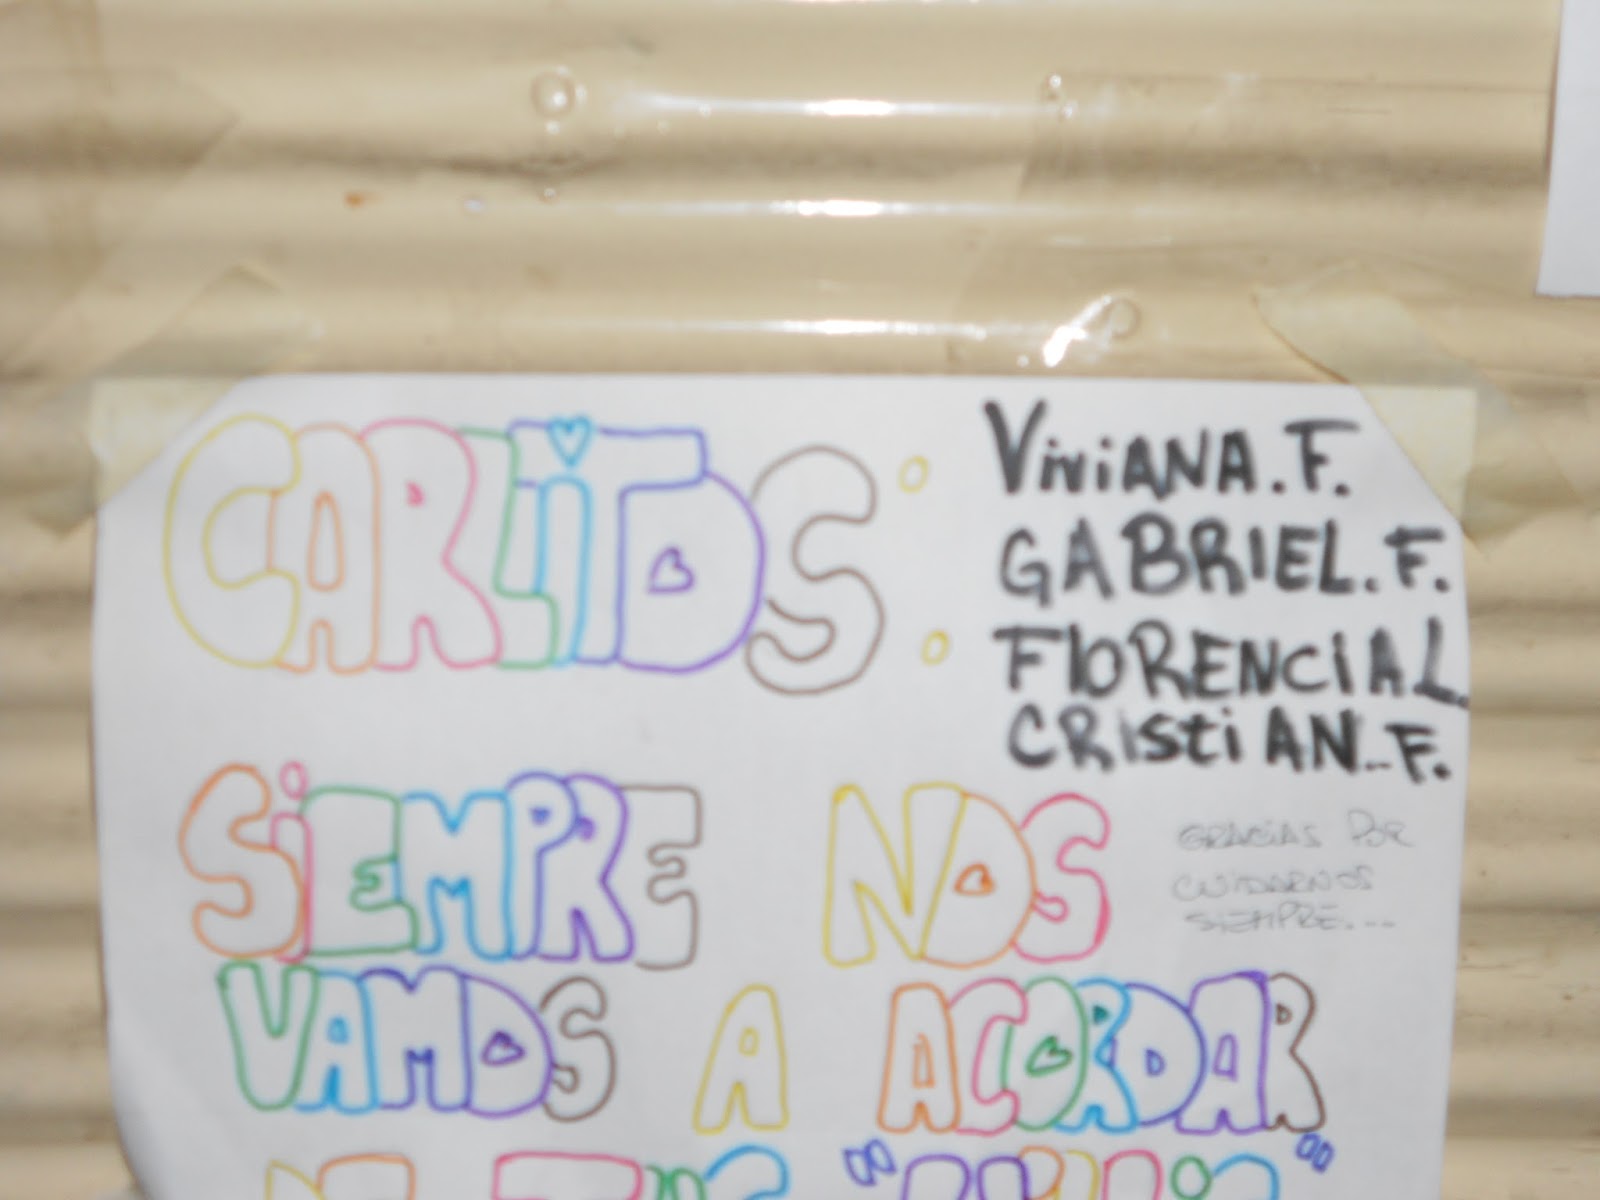 CARLiTOS:
SiEMPRE NOS
VAMOS A ACORDAR
ViViANA.F.
GABRIEL.F.
FlORENCiAL.
CRistiAN..F.
GRACIAS POR
CUIDARNOS
SIEMPRE....